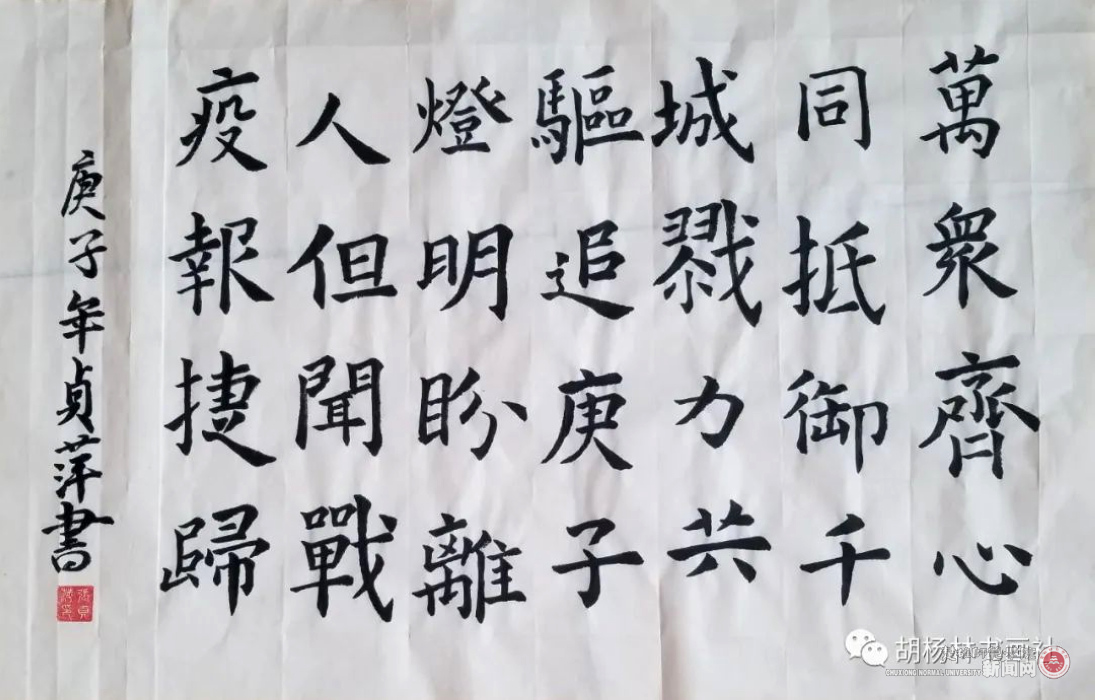 萬衆齊心
同抵御千
城戮力共
驅追庚子
燈明盼離
人但聞戰
疫報捷歸
庚子年貞萍書
胡杨林书画社
新闻网
CHUXIONG NORMAL UNIVERSITY